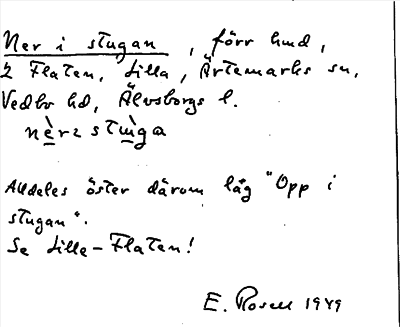 Ner i stugan, förr hmd,
2 Flaten, Lilla, Ärtemarks sn,
Vedbo hd, Älvsborgs l.
nè̱rz stù̱ga
Alldeles öster därom låg "Opp i
stugan".
Se Lilla-Flaten!
E. Rosell 1949